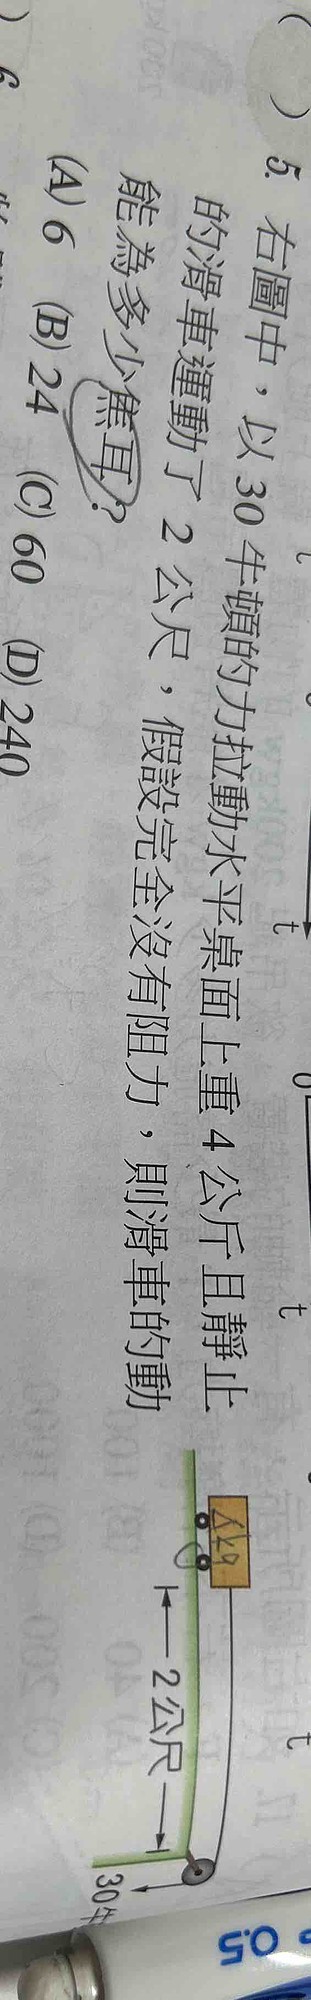 ( ) 5. 右圖中，以 30 牛頓的力拉動水平桌面上重 4 公斤且靜止
的滑車運動了 2 公尺，假設完全沒有阻力，則滑車的動
能為多少焦耳？
(A) 6 (B) 24 (C) 60 (D) 240
4kg
2公尺
30牛
) 6
t
t
t
0
0.5